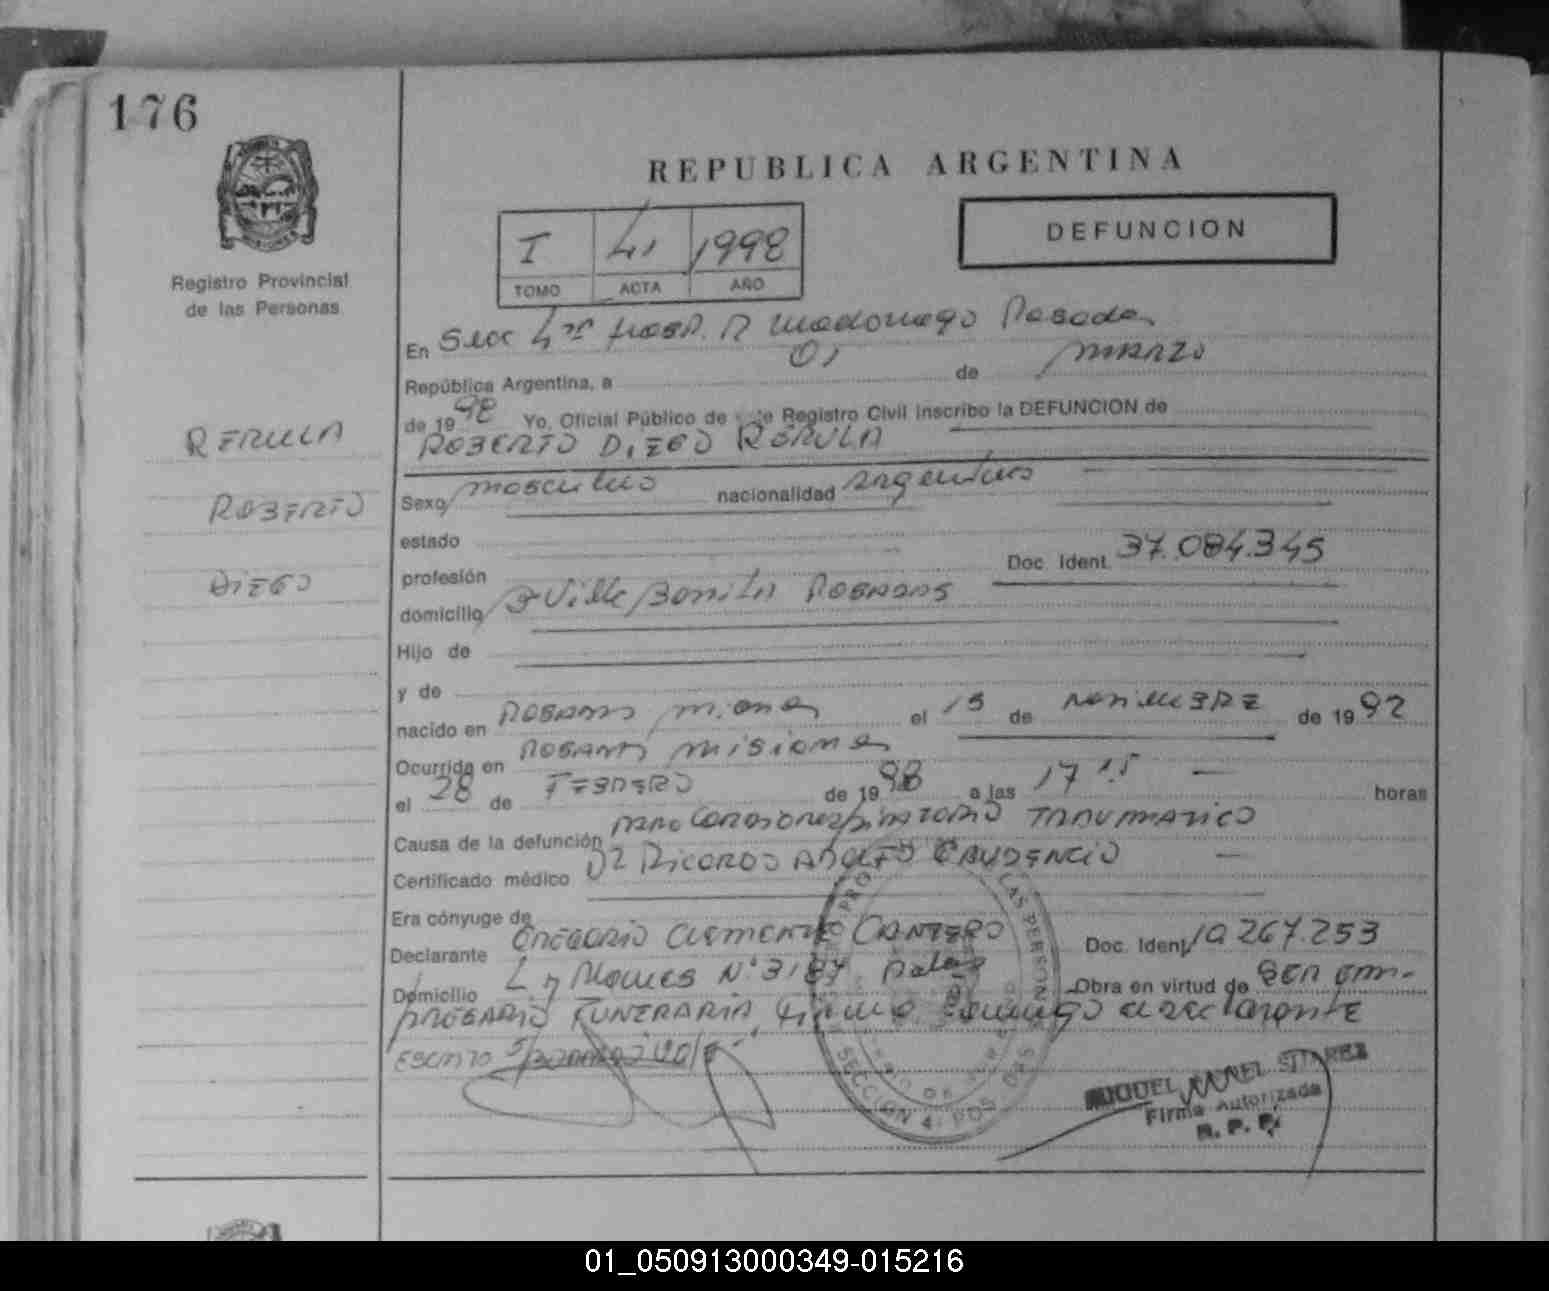 176
REPUBLICA ARGENTINA
DEFUNCION
I 41 1998
TOMO ACTA AÑO
Registro Provincial
de las Personas
En Secc 4ta Hosp. R Madariaga Posadas
República Argentina, a 01 de marzo
de 1998 Yo, Oficial Público de este Registro Civil inscribo la DEFUNCION de
ROBERTO DIEGO RERULA
RERULA
ROBERTO
DIEGO
Sexo masculino nacionalidad argentino
estado
profesión Doc. Ident. 37.084.345
domicilio Bº Ville Bonita
Hijo de
y de
nacido en el 15 de NOVIEMBRE de 1992
Ocurrida en misiones
el 28 de FEBRERO de 1998 a las 17 15 horas
Causa de la defunción paro cardiorespiratorio TRAUMATICO
Certificado médico DR Ricardo ADOLFO GAUDENCIO
Era cónyuge de
Declarante GREGORIO CLEMENTE CANTERO Doc. Ident. 10.267.253
Domicilio Nº 3187 Obra en virtud de ser em-
PRESARIO FUNERARIA, firma conmigo el declarante
SECCION 4ª POS
MIGUEL ANGEL
Firma Autorizada
R. P. P.
01_050913000349-015216